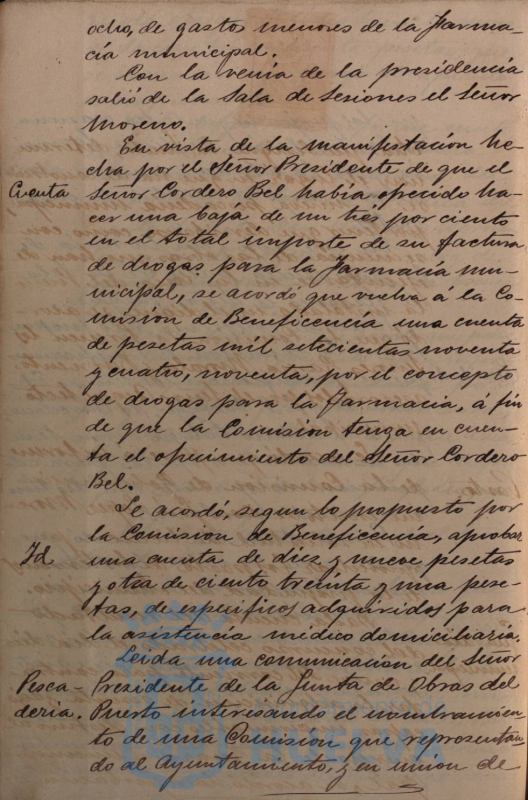 ocho, de gastos menores de la Farma-
cía municipal.
Con la venia de la presidencia
salió de la Sala de Sesiones el Señor
Moreno.
En vista de la manifestación he
cha por el Señor Presidente de que el
Cuenta Señor Cordero Bel había ofrecido ha-
cer una baja de un tres por ciento
en el total importe de su factura
de drogas para la Farmacia mu-
nicipal, se acordó que vuelva á la Co-
misión de Beneficencia una cuenta
de pesetas mil setecientas noventa
y cuatro, noventa, por el concepto
de drogas para la Farmacia, á fin
de que la Comision tenga en cuen-
ta el ofrecimiento del Señor Cordero
Bel.
Se acordó, segun lo propuesto por
la Comision de Beneficencia, aprobar
Id una cuenta de diez y nueve pesetas
y otra de ciento treinta y una pese-
tas, de específicos adquiridos para
la asistencia médico domiciliaria.
Leida una comunicación del Señor
Pesca- Presidente de la Junta de Obras del
dería. Puerto interesando el nombramien-
to de una Comision que representan-
do al Ayuntamiento, y en union de